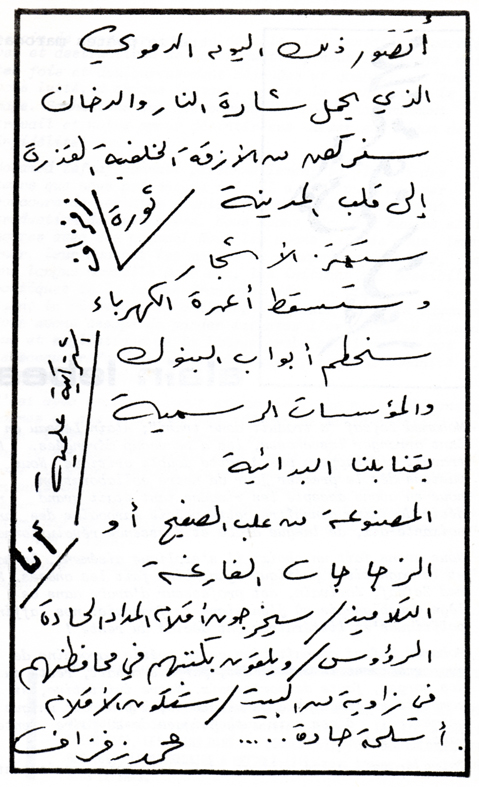 أتصور ذلك اليوم الدموي
الذي يحمل شارة النار والدخان
سنركض من الأزقة الخلفية القذرة
إلى قلب المدينة
ستهتز الأشجار
وستسقط أعمدة الكهرباء
سنحطم أبواب البنوك
والمؤسسات الرسمية
بقنابلنا البدائية
المصنوعة من علب الصفيح أو
الزجاجات الفارغة
التلاميذ / سيخرجون أقلام المداد الحادة
الرؤوس / ويلقون بكتبهم في محافظهم
في زاوية من البيت / ستكون الأقلام
أسلحة حادة.....
محمد زفزاف
ثورة
اشتراكية علمية